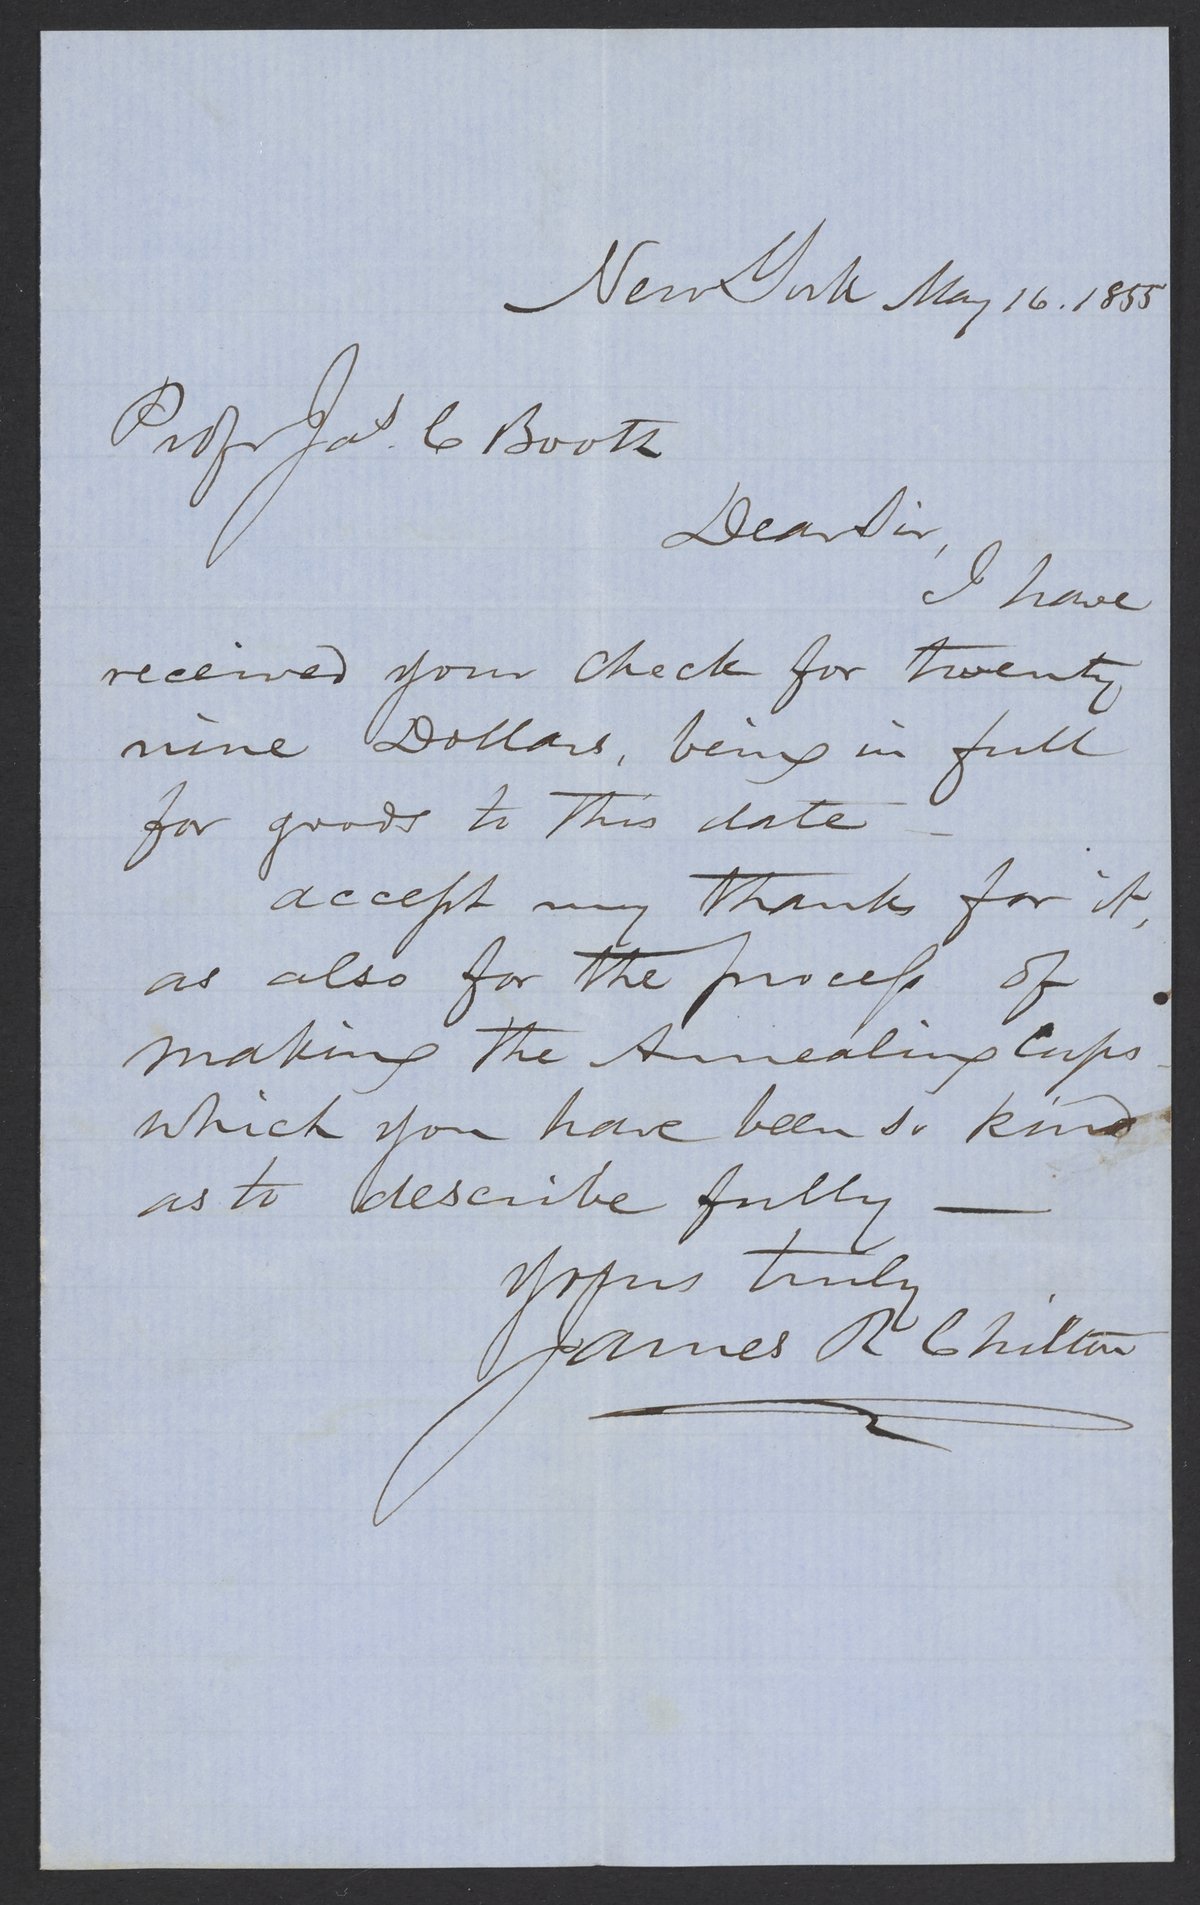 New York May 16. 1855
Profr Jas. C Booth
Dear Sir,
I have
received your check for twenty
nine Dollars, being in full
for goods to this date –
accept my thanks for it,
as also for the process of
making the Annealing Cups
which you have been so kind
as to describe fully —
yours truly
James R Chilton